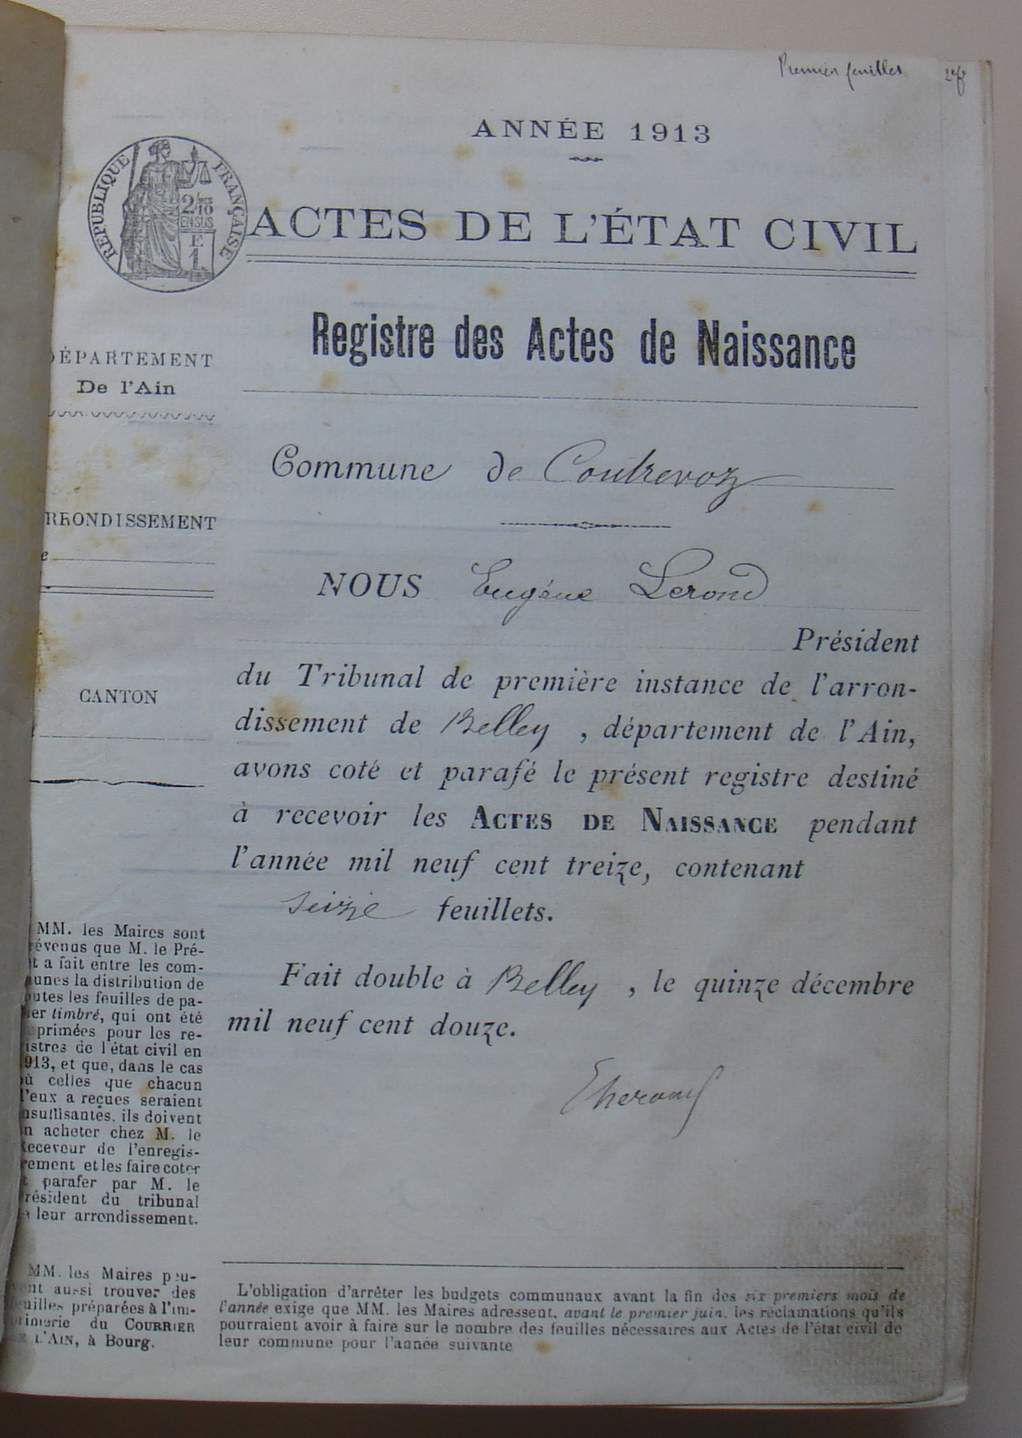 Premier feuillet
ANNÉE 1913
RÉPUBLIQUE FRANÇAISE
2/10
EN SUS
E
1
ACTES DE L'ÉTAT CIVIL
Registre des Actes de Naissance
ÉPARTEMENT
De l'Ain
Commune de Contrevoz
RRONDISSEMENT
e
NOUS Eugène Lerond
Président
du Tribunal de première instance de l'arron-
dissement de Belley, département de l'Ain,
avons coté et parafé le présent registre destiné
à recevoir les ACTES DE NAISSANCE pendant
l'année mil neuf cent treize, contenant
seize feuillets.
Fait double à Belley, le quinze décembre
mil neuf cent douze.
CANTON
MM. les Maires sont
révenus que M. le Pré-
t a fait entre les com-
unes la distribution de
outes les feuilles de pa-
ier timbré, qui ont été
primées pour les re-
istres de l'état civil en
913, et que, dans le cas
ù celles que chacun
l'eux a reçues seraient
nsuffisantes, ils doivent
n acheter chez M. le
eceveur de l'enregis-
rement et les faire coter
t parafer par M. le
résident du tribunal
leur arrondissement.
MM. les Maires peu-
ent aussi trouver des
euilles préparées à l'im-
rimerie du COURRIER
L'AIN, à Bourg.
L'obligation d'arrêter les budgets communaux avant la fin des six premiers mois de
l'année exige que MM. les Maires adressent, avant le premier juin, les réclamations qu'ils
pourraient avoir à faire sur le nombre des feuilles nécessaires aux Actes de l'état civil de
leur commune pour l'année suivante